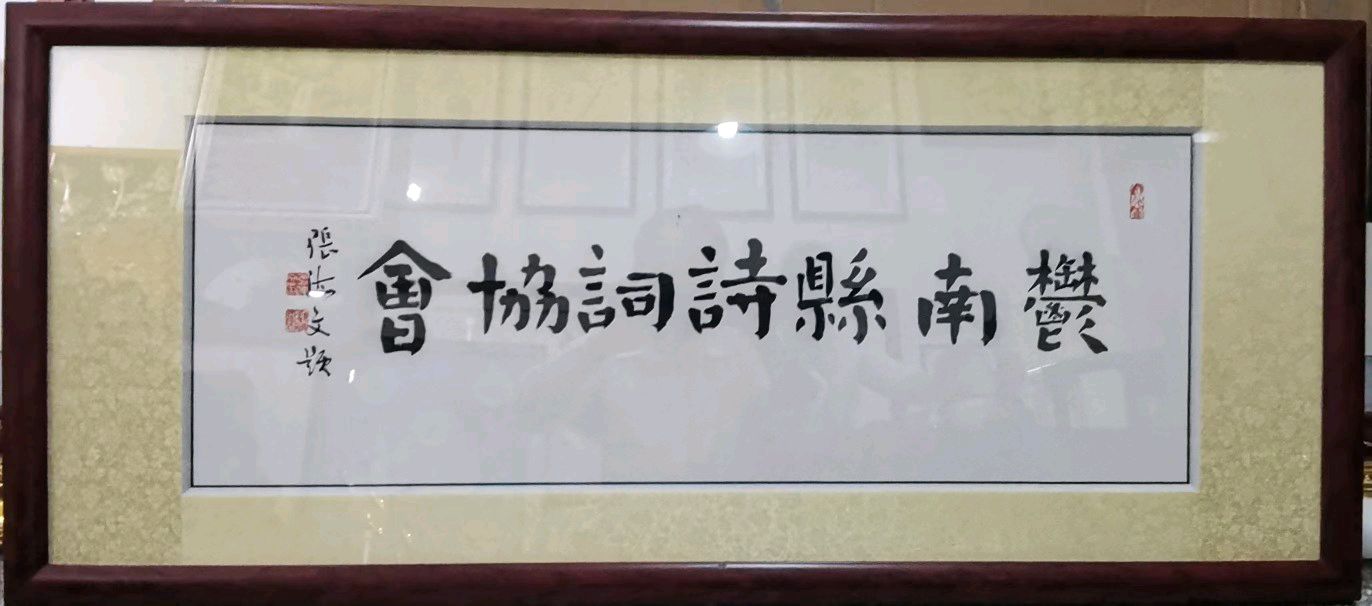 鬱南縣詩詞協會
張海文題